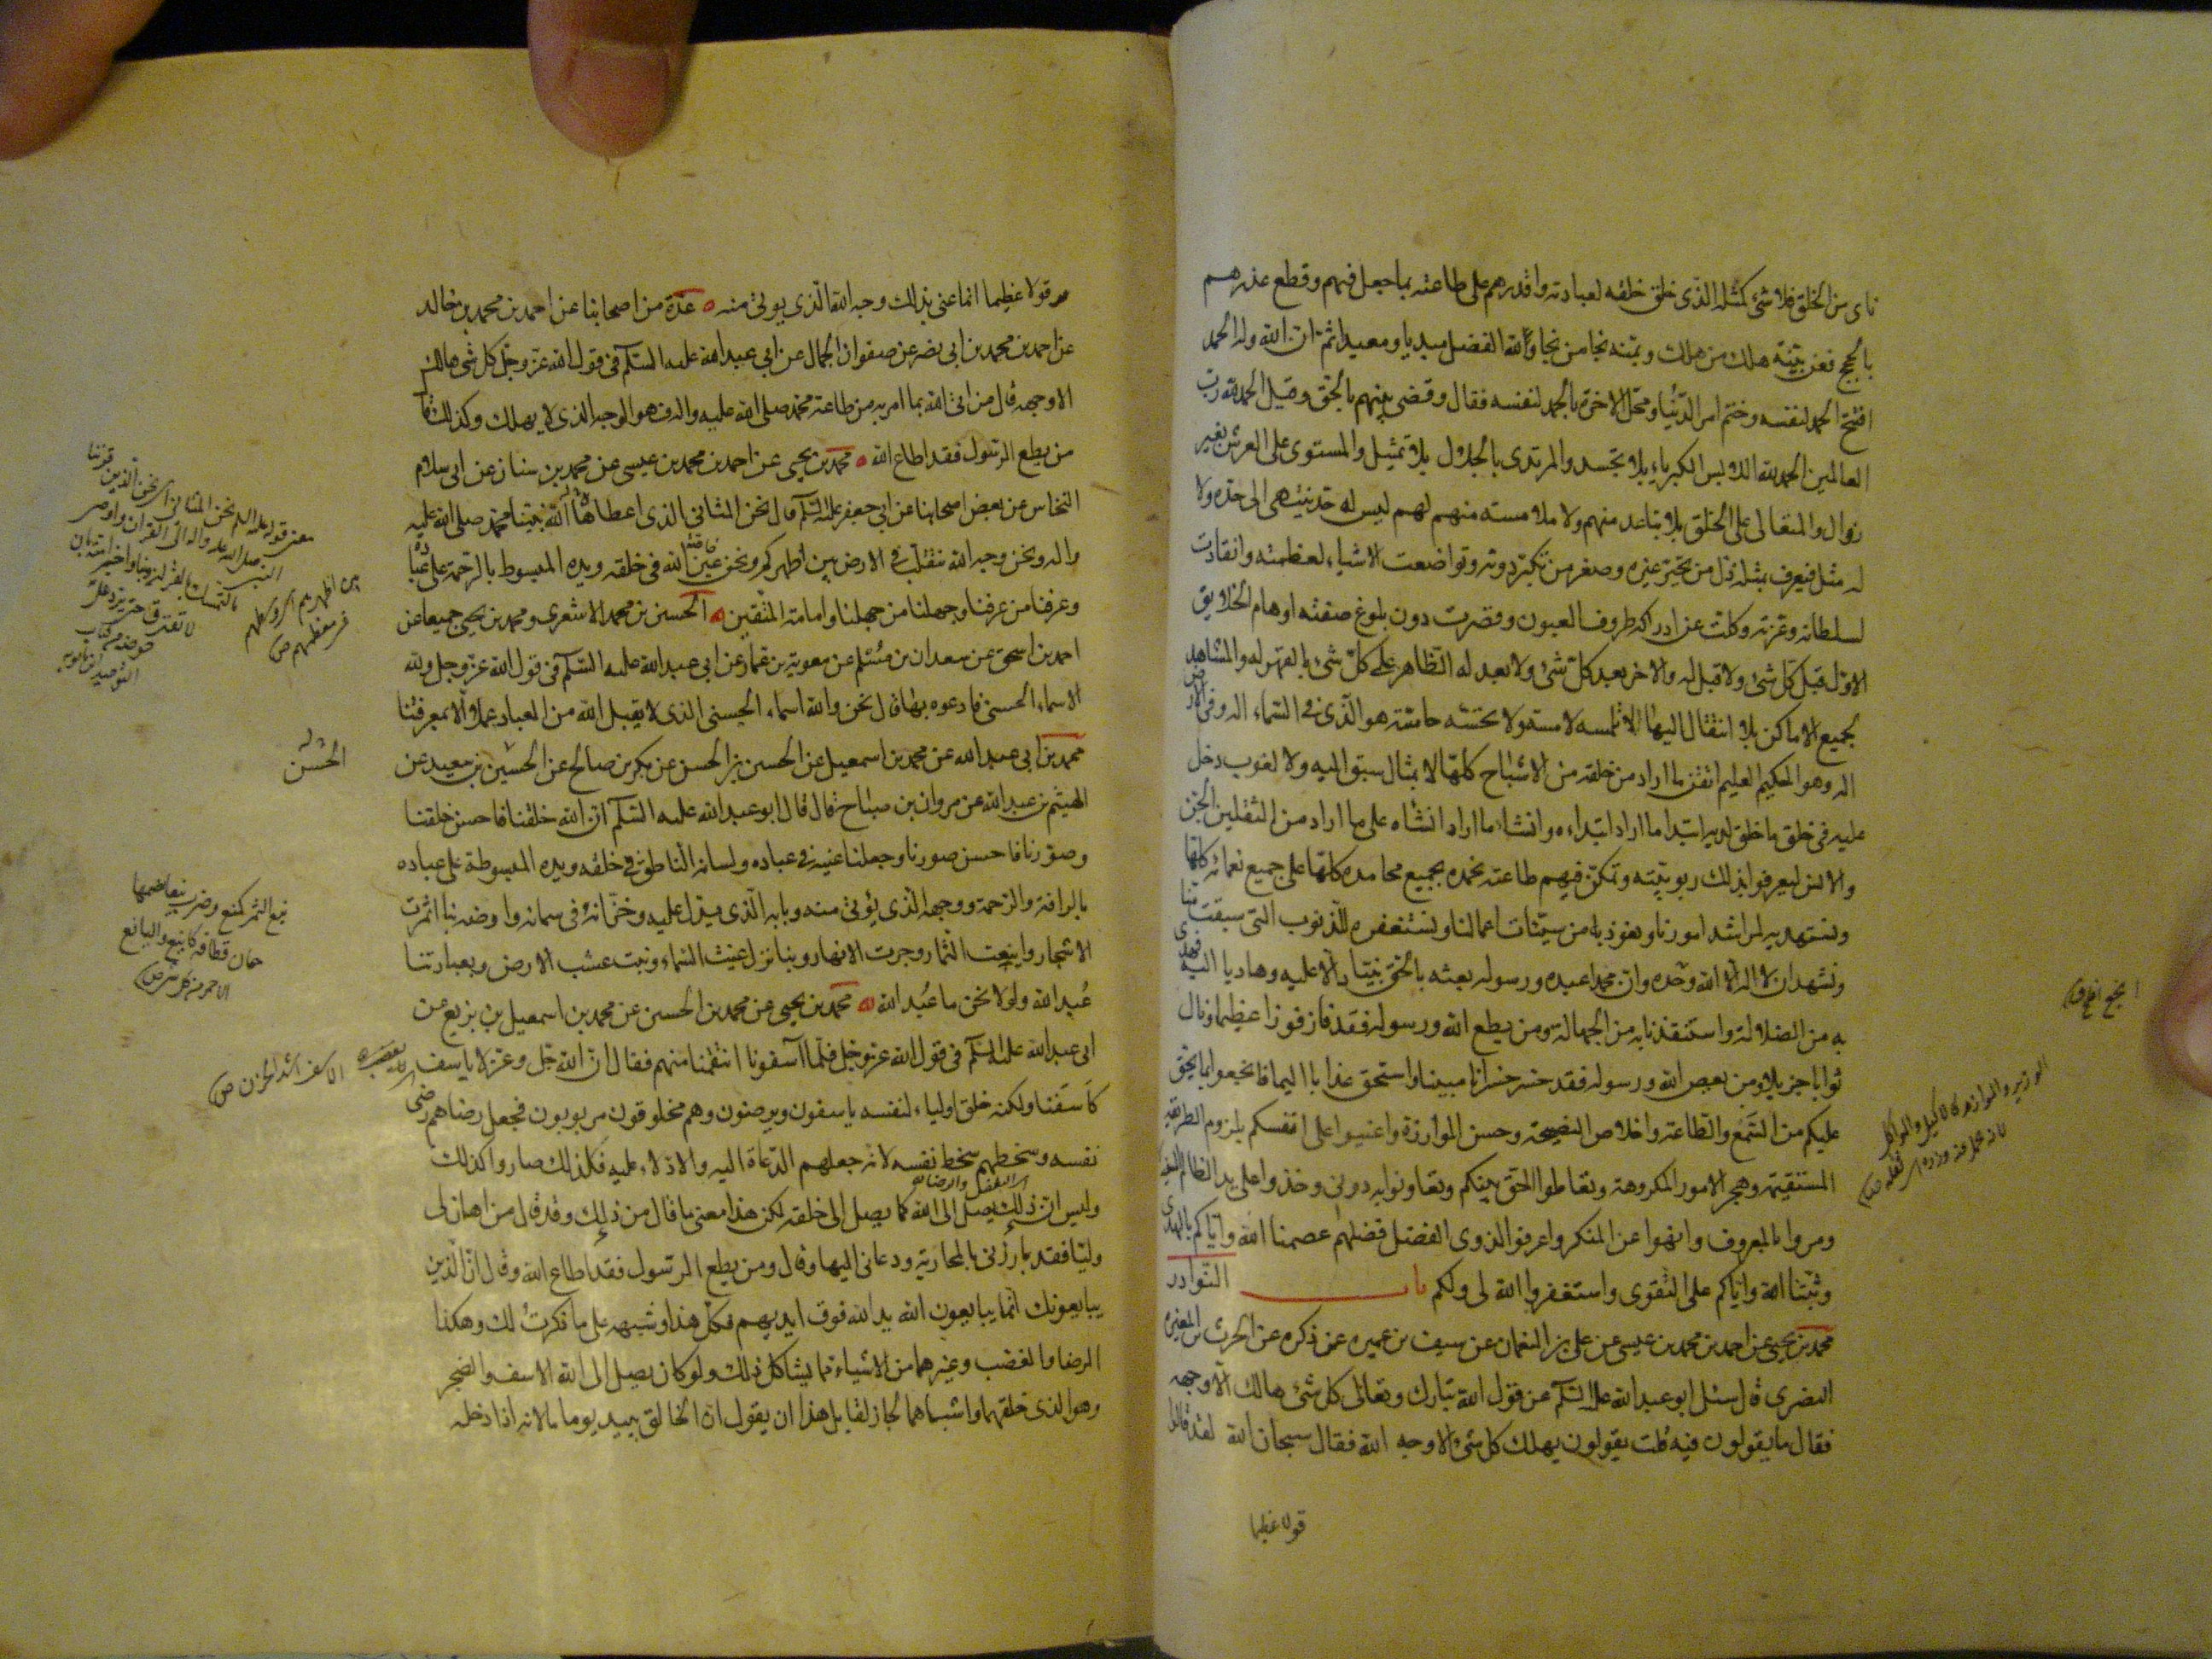 نای من الخلق فلا شیء کمثله الذی خلق خلقه لعبادته واقدرهم علی طاعته بما جعل فیهم وقطع عذرهم
بالحجج فعن بینة هلك من هلك وبمنه نجا من نجا ولله الفضل مبدیا ومعیدا ثم ان الله وله الحمد
افتتح الحمد لنفسه وختم امر الدنیا ومحل الاخرة بالحمد لنفسه فقال وقضی بینهم بالحق وقیل الحمد لله رب
العالمین الحمد لله اللابس الکبریاء بلا تجسد والمرتدی بالجلال بلا تمثیل والمستوی علی العرش بغیر
زوال والمتعالی علی الخلق بلا تباعد منهم ولا ملامسته منهم لهم لیس له حد ینتهی الی حده ولا
له مثل فیعرف بمثله ذل من تجبر غیره وصغر من تکبر دونه وتواضعت الاشیاء لعظمته وانقادت
لسلطانه وعزته وکلت عن ادراکه طروف العیون وقصرت دون بلوغ صفته اوهام الخلایق
الاول قبل کل شیء ولا قبل له والاخر بعد کل شیء ولا بعد له الظاهر علی کل شیء بالقهر له والمشاهد
لجمیع الاماکن بلا انتقال الیها لا تلمسه لامسة ولا تحسه حاسة هو الذی فی السماء اله وفی الارض
اله وهو الحکیم العلیم اتقن ما اراد من خلقه من الاشباح کلها لا بمثال سبق الیه ولا لغوب دخل
علیه فی خلق ما خلق لدیه ابتدا ما اراد ابتداءه وانشاء ما اراد انشاه علی ما اراد من الثقلین الجن
والانس لیعرفوا بذلك ربوبیته وتمکن فیهم طاعته نحمده بجمیع محامده کلها علی جمیع نعمائه کلها
ونستهدیه لمراشد امورنا ونعوذ به من سیئات اعمالنا ونستغفره للذنوب التی سبقت منا
ونشهد ان لا اله الا الله وحده وان محمدا عبده ورسوله بعثه بالحق نبیا دالا علیه وهادیا الیه فهدی
به من الضلالة واستنقذنا به من الجهالة ومن یطع الله ورسوله فقد فاز فوزا عظیما ونال
ثوابا جزیلا ومن یعص الله ورسوله فقد خسر خسرانا مبینا واستحق عذابا الیما فانجعوا بما یحق
علیکم من السمع والطاعة واخلاص النصیحة وحسن الموازرة واعینوا علی انفسکم بلزوم الطریقة
المستقیمة وهجر الامور المکروهة وتعاطوا الحق بینکم وتعاونوا به دونی وخذوا علی ید الظالم السفیه
ومروا بالمعروف وانهوا عن المنکر واعرفوا لذوی الفضل فضلهم عصمنا الله وایاکم بالهدی
وثبتنا الله وایاکم علی التقوی واستغفروا الله لی ولکم باب النوادر
محمد بن یحیی عن احمد بن محمد بن عیسی عن علی بن النعمان عن سیف بن عمیره عن ذکره عن الحرث بن المغیرة
النصری قال سئل ابو عبد الله علیه السلام عن قول الله تبارك وتعالی کل شیء هالك الا وجهه
فقال ما یقولون فیه قلت یقولون یهلك کل شیء الا وجه الله فقال سبحان الله لقد قالوا
قولا عظیما
قولا عظیما انما عنی بذلك وجه الله الذی یوتی منه عدة من اصحابنا عن احمد بن محمد بن خالد
عن احمد بن محمد بن ابی نصر عن صفوان الجمال عن ابی عبد الله علیه السلام فی قول الله عز وجل کل شی هالك
الا وجهه قال من اتی الله بما امر به من طاعة محمد صلی الله علیه واله فهو الوجه الذی لا یهلك وکذلك قال
من یطع الرسول فقد اطاع الله محمد بن یحیی عن احمد بن محمد بن عیسی عن محمد بن سنان عن ابی سلام
النخاس عن بعض اصحابنا عن ابی جعفر علیه السلام قال نحن المثانی الذی اعطاها الله نبینا محمد صلی الله علیه
واله ونحن وجه الله نتقلب فی الارض بین اظهرکم ونحن عین الله فی خلقه ویده المبسوط بالرحمة علی عباده
وعرفنا من عرفنا وجهلنا من جهلنا وامامة المتقین الحسین بن محمد الاشعری ومحمد بن یحیی جمیعا عن
احمد بن اسحق عن سعدان بن مسلم عن معویة بن عمار عن ابی عبد الله علیه السلام فی قول الله عز وجل ولله
الاسماء الحسنی فادعوه بها قال نحن والله اسماء الحسنی الذی لا یقبل الله من العباد عملا الا بمعرفتنا
محمد بن ابی عبد الله عن محمد بن اسمعیل عن الحسین بن الحسن عن بکر بن صالح عن الحسین بن سعید عن
الهیثم بن عبد الله عن مروان بن صباح قال قال ابو عبد الله علیه السلام ان الله خلقنا فاحسن خلقنا
وصورنا فاحسن صورنا وجعلنا عینه فی عباده ولسانه الناطق فی خلقه ویده المبسوطة علی عباده
بالرافة والرحمة ووجهه الذی یؤتی منه وبابه الذی یدل علیه وخزانه فی سمائه وارضه بنا اثمرت
الاشجار واینعت الثمار وجرت الانهار وبنا نزل غیث السماء ونبت عشب الارض وبعبادتنا
عُبد الله ولولا نحن ما عُبد الله محمد بن یحیی عن محمد بن الحسین عن محمد بن اسمعیل بن بزیع عن
ابی عبد الله علیه السلام فی قول الله عز وجل فلما آسفونا انتقمنا منهم فقال ان الله جل وعز لا یاسف
کاسفنا ولکنه خلق اولیاء لنفسه یاسفون ویرضون وهم مخلوقون مربوبون فجعل رضاهم رضی
نفسه وسخطهم سخط نفسه لانه جعلهم الدعاة الیه والادلاء علیه فلذلك صاروا کذلك
ولیس ان ذلك یصل الی الله کما یصل الی خلقه لکن هذا معنی ما قال من ذلك وقد قال من اهان لی
ولیا فقد بارزنی بالمحاربة ودعانی الیها وقال ومن یطع الرسول فقد اطاع الله وقال ان الذین
یبایعونك انما یبایعون الله ید الله فوق ایدیهم فکل هذا وشبهه علی ما ذکرتُ لك وهکذا
الرضا والغضب وغیرهما من الاشیاء مما یشاکل ذلك ولو کان یصل الی الله الاسف والضجر
وهو الذی خلقهما واشباههما لجاز لقایل هذا ان یقول ان الخالق یبید یوما ما لانه اذا دخله